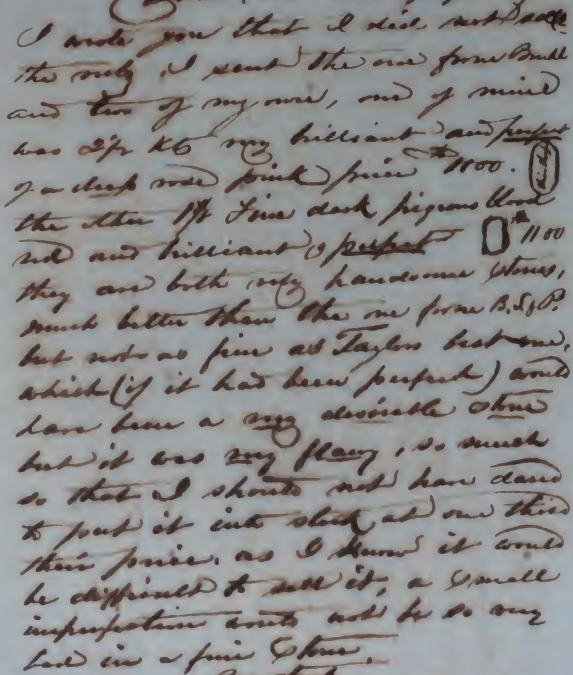 I wrote you that I did not
the ruby. I sent the one from
and two of my own, one of mine
was Kt very brilliant and perfect
of a deep rose pink price 1800.
the other Fine dark pigeons blood
red and brilliant & perfect 1100
they are both very handsome stones,
much better than the one from B.S&P.
but not as fine as Taylors best one,
which (if it had been perfect) would
have been a very desirable stone
but it was very flawy, so much
so that I should not have dared
to put it into stock at one third
their price. as I know it would
be difficult to sell it, a small
imperfection would not be so very
bad in a fine stone